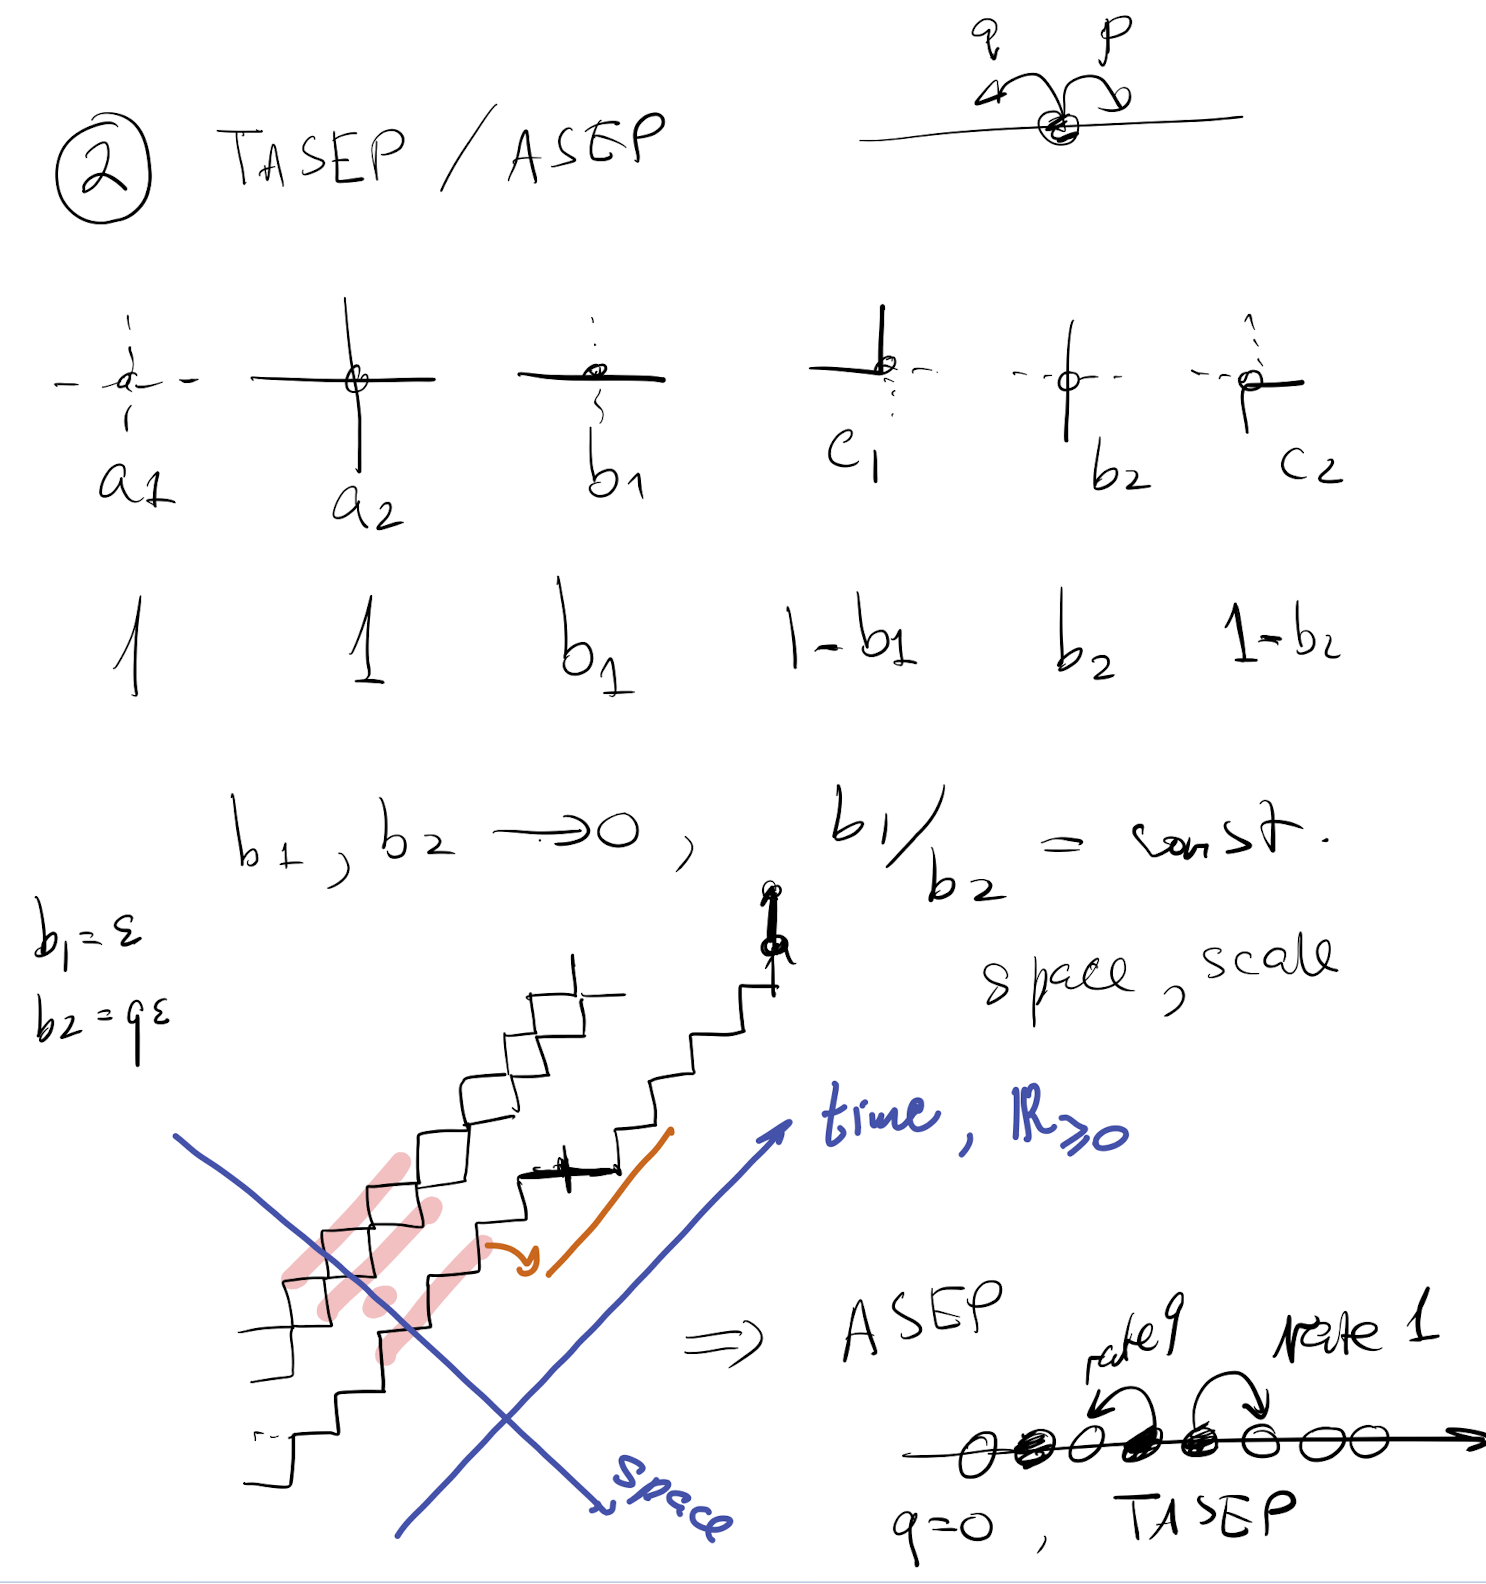 q p
② TASEP / ASEP
a1 a2 b1 c1 b2 c2
1 1 b1 1-b1 b2 1-b2
b1, b2 → 0, b1/b2 = const.
b1 = ε
b2 = qε
space, scale
time, ℝ≥0
⇒ ASEP
rate q rate 1
space
q=0, TASEP